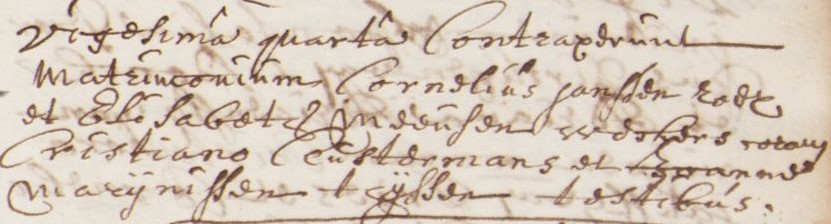 vigesimâ quartâ Contraxerunt
Matrimonium Cornelius janssen roex
et Elisabeth Meeusen weckers coram
Cristiano Ceustermans et Joannes
Marijnissen tijssen testibus.